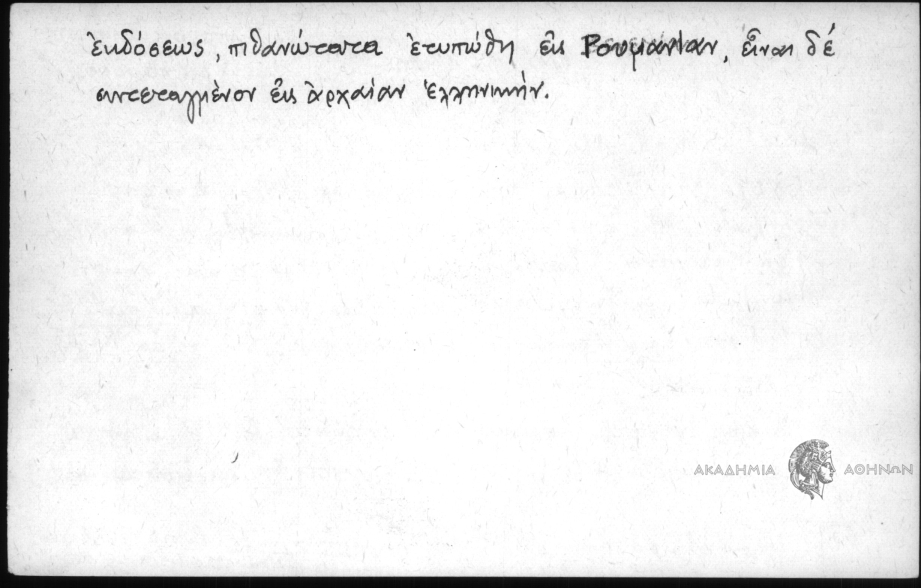 ἐκδόσεως, πιθανώτατα ἐτυπώθη εἰς Ρουμανίαν, εἶναι δέ
συντεταγμένον εἰς ἀρχαίαν ἑλληνικήν.
ΑΚΑΔΗΜΙΑ ΑΘΗΝΩΝ